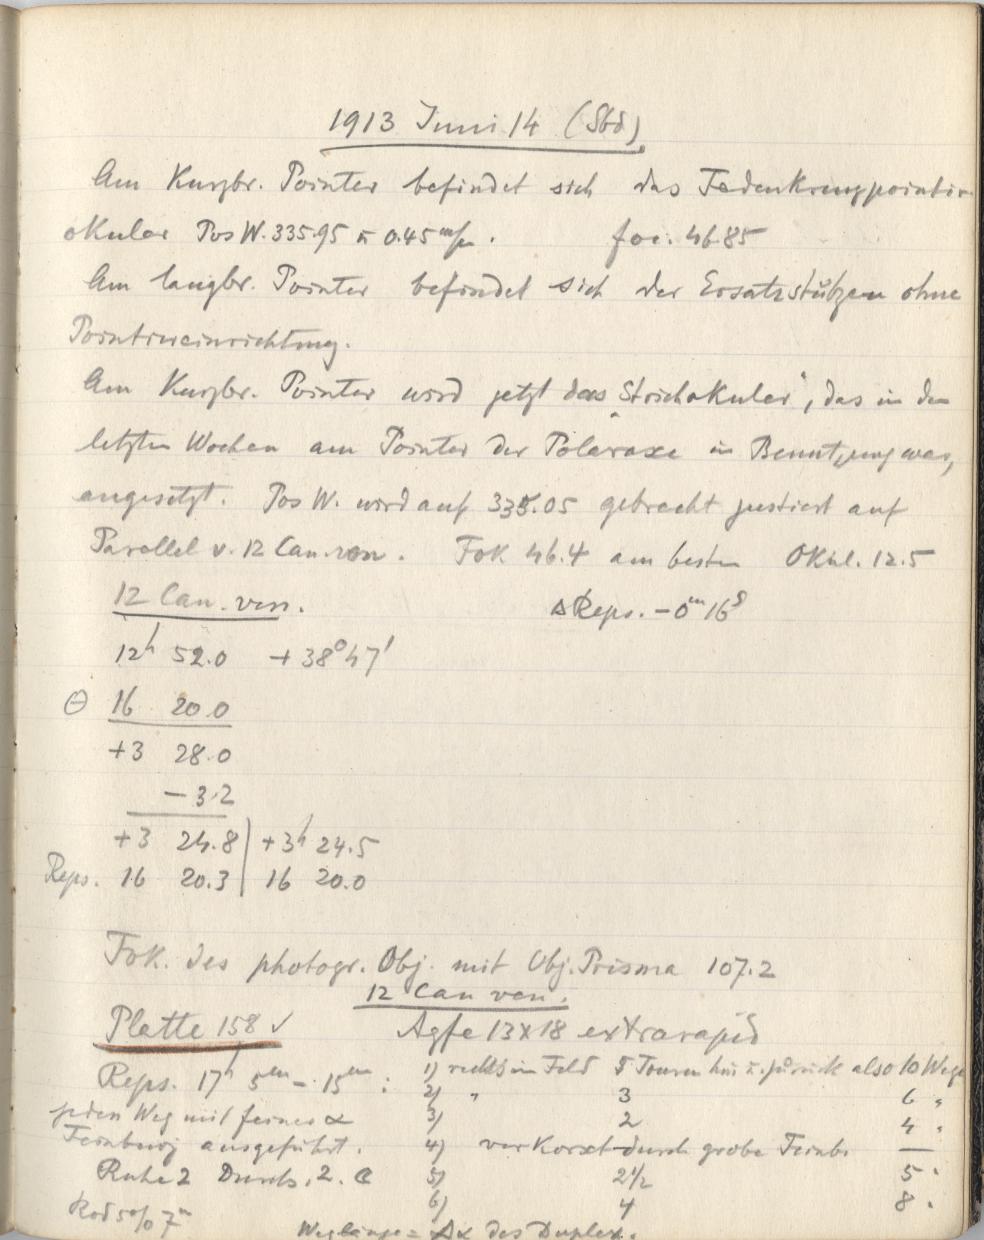 1913 Juni 14 (Sbd)
Am Kurzbr. Pointer befindet sich das Fadenkreuzpointir-
okular Pos W. 335.95 0.45 foc. 46.85
Am langbr. Pointer befindet sich der Ersatzstutzen ohne
Pointiereinrichtung.
Am Kurzbr. Pointer wird jetzt das "Strichokular", das in den
letzten Wochen am Pointer der Polaraxe in Benutzung war,
angesetzt. Pos W. wird auf 335.05 gebracht justiert auf
Parallel v. 12 Can. ven. Fok 46.4 am besten Okul. 12.5
12 Can. ven. ΔReps. -0ᵐ16ˢ
12ʰ 52.0 +38°47'
Θ 16 20.0
+3 28.0
-3.2
+3 24.8 | +3ʰ 24.5
Reps. 16 20.3 | 16 20.0
Fok. des photogr. Obj. mit Obj. Prisma 107.2
12 Can ven.
Platte 158 ✓ Agfa 13x18 extrarapid
Reps. 17ʰ 5ᵐ - 15ᵐ : 1) rechts im Feld 5 Touren hin u. zurück also 10 Wege
2) " 3 6 "
jeden Weg mit feiner α 3) 2 4 "
Feinbewg ausgeführt. 4) verkorxt durch grobe Feinb. —
Ruhe 2 Durchs. 2. 5) 2½ 5 "
6) 4 8 "
Rod 50% 7ᵐ
Weglänge = Δα des Duplex.